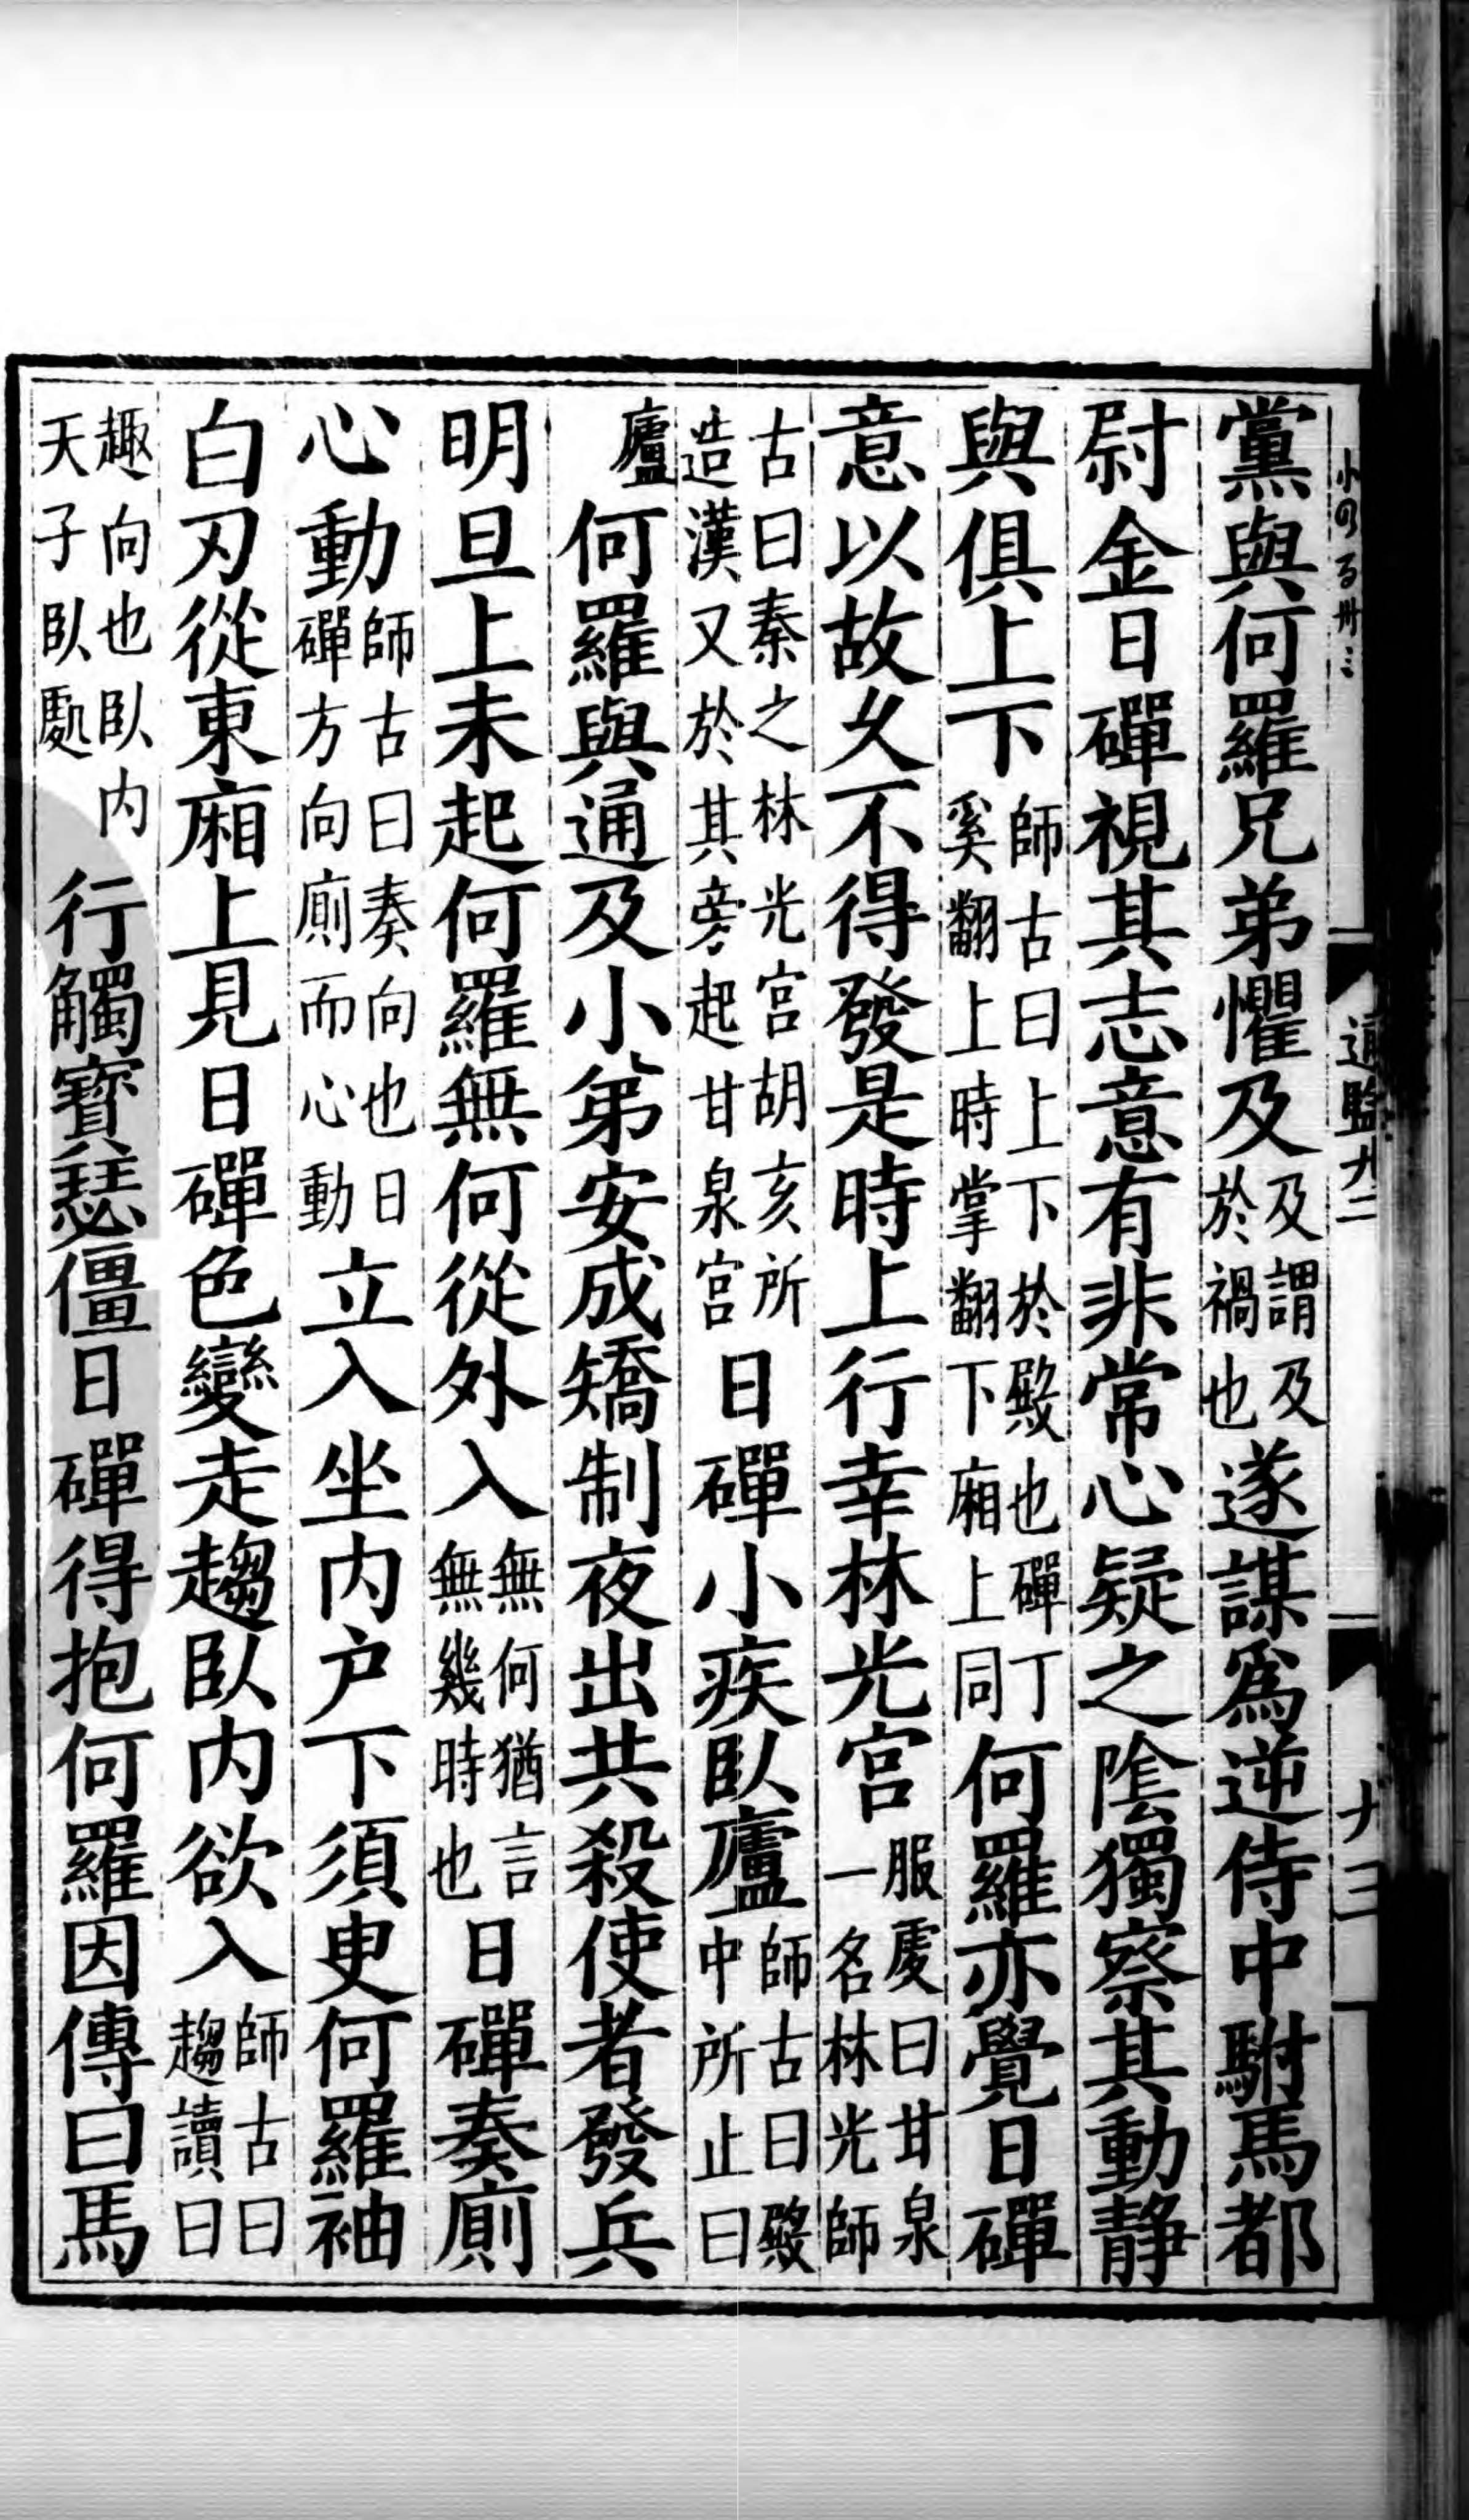 黨與何羅兄弟懼及及謂及於禍也遂謀爲逆侍中駙馬都
尉金日磾視其志意有非常心疑之陰獨察其動靜
與俱上下師古曰上下於殿也磾丁奚翻上時掌翻下廂上同何羅亦覺日磾
意以故久不得發是時上行幸林光宮服虔曰甘泉一名林光師
古曰秦之林光宮胡亥所造漢又於其旁起甘泉宮日磾小疾臥廬師古曰殿中所止曰
廬何羅與通及小弟安成矯制夜出共殺使者發兵
明旦上未起何羅無何從外入無何猶言無幾時也日磾奏廁
心動師古曰奏向也日磾方向廁而心動立入坐內戶下須臾何羅袖
白刃從東廂上見日磾色變走趨臥內欲入師古曰趨讀曰
趣向也臥內天子臥處行觸寶瑟僵日磾得抱何羅因傳曰馬
通監九二